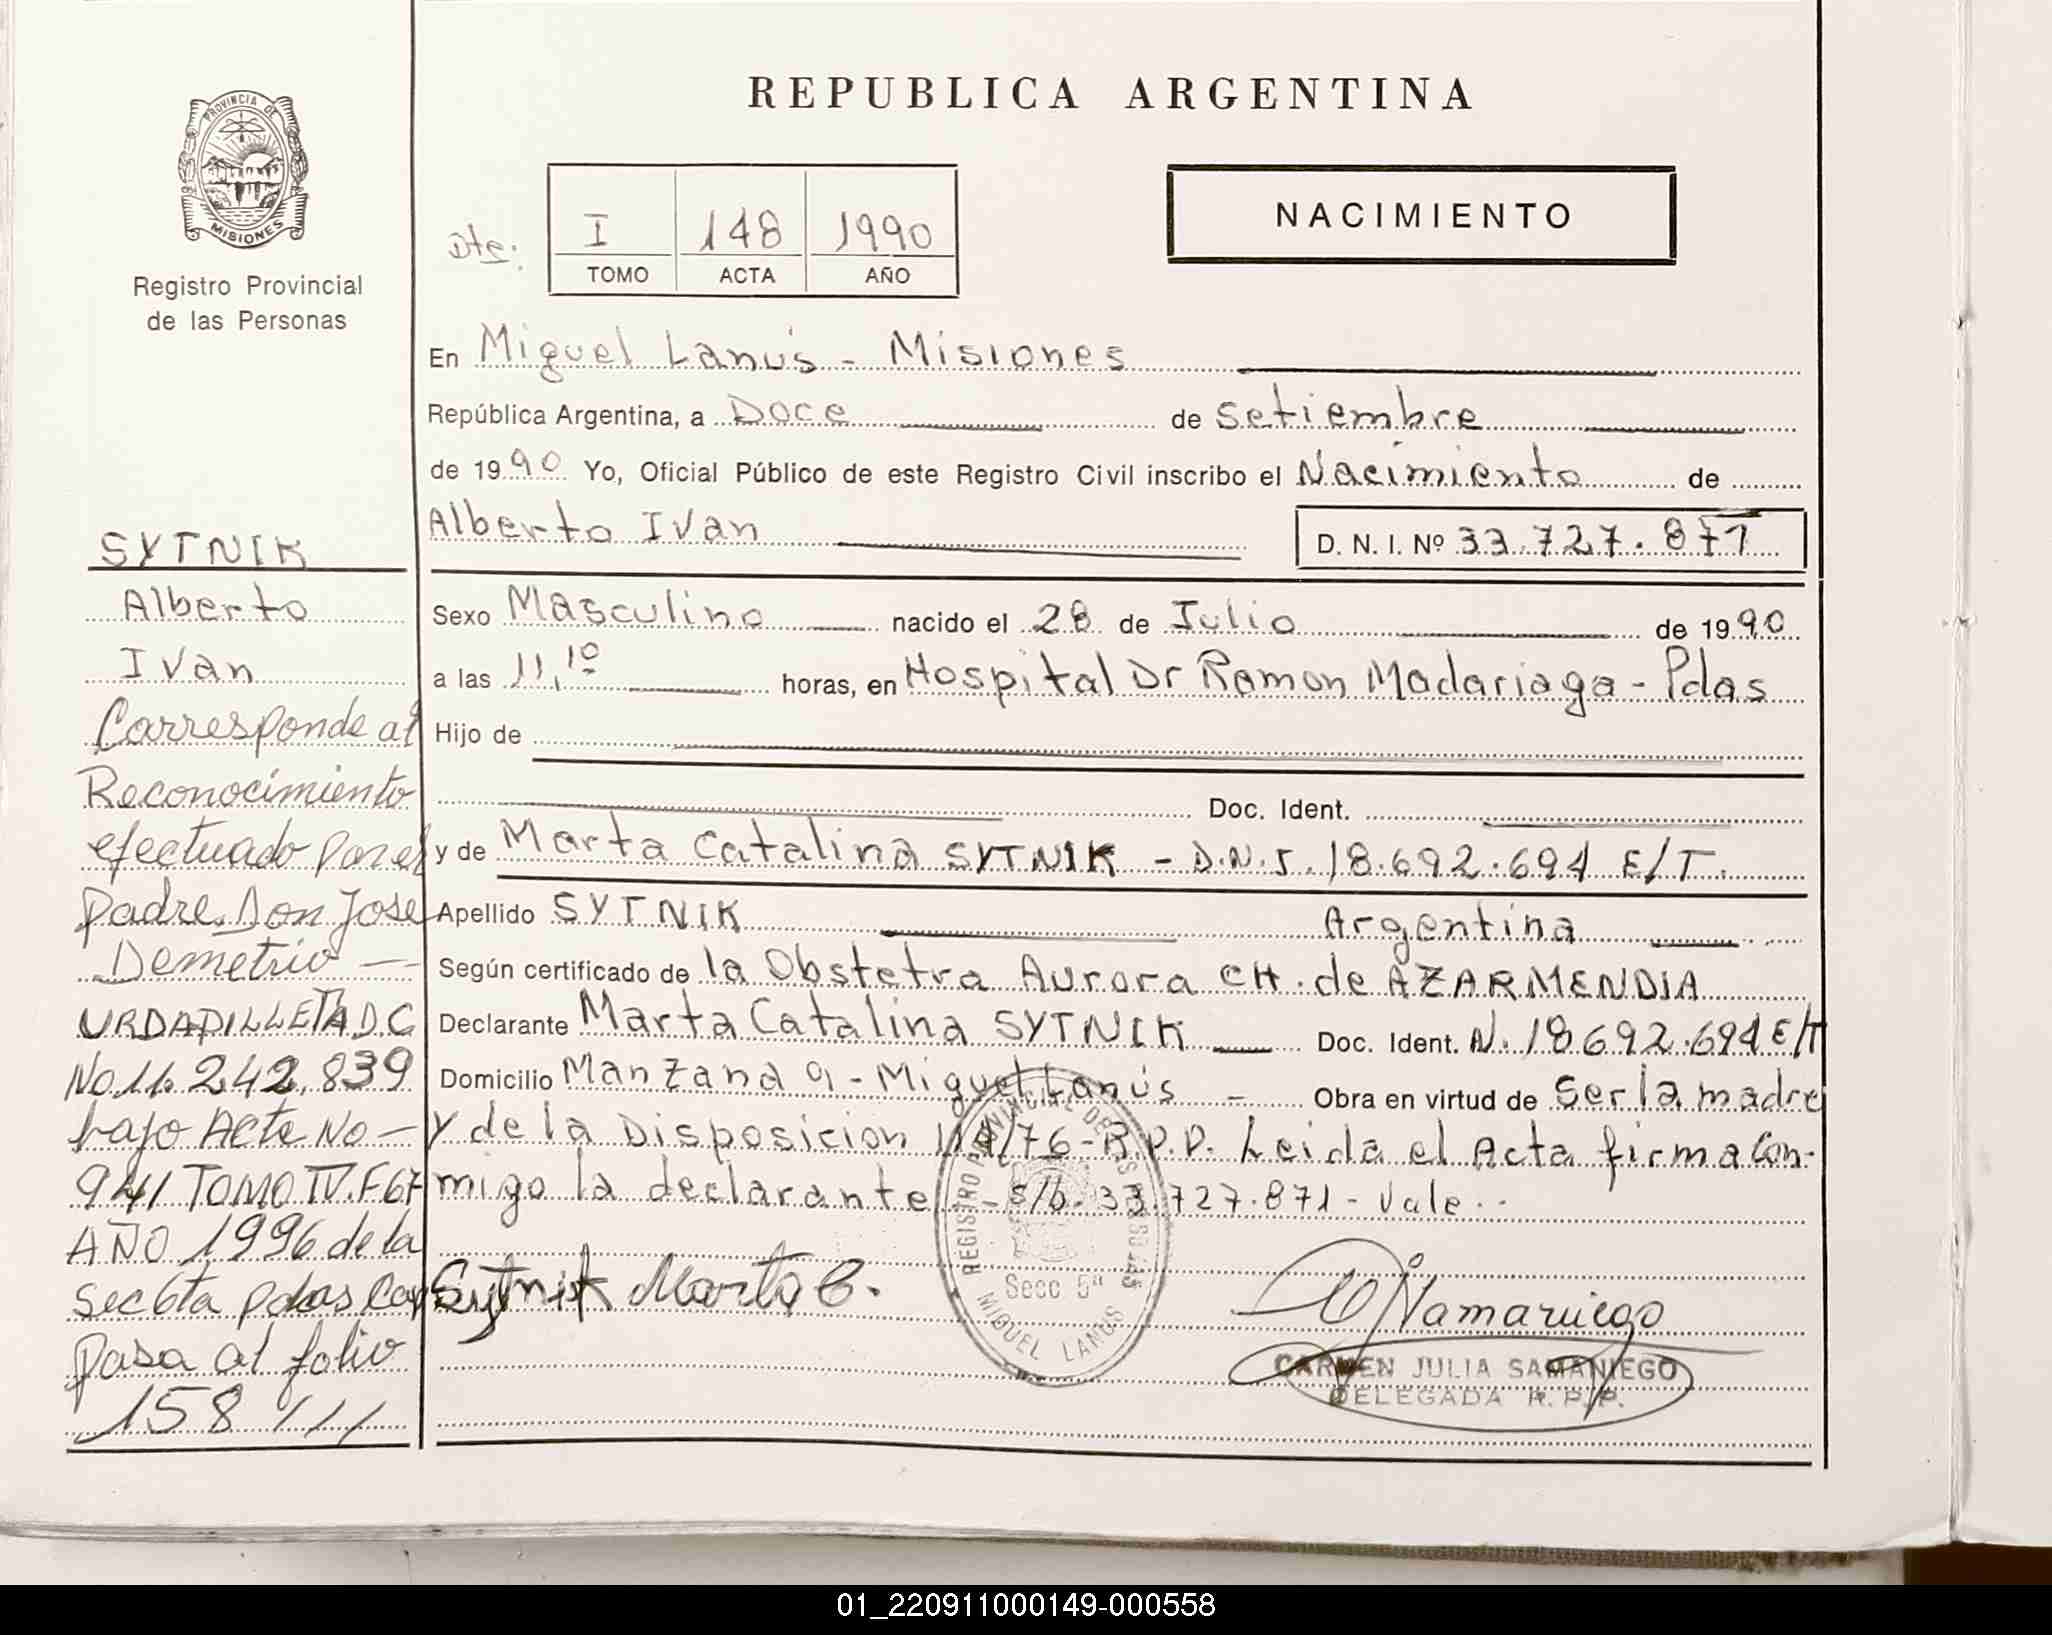 PROVINCIA DE
MISIONES
Registro Provincial
de las Personas
REPUBLICA ARGENTINA
Dte:
I 148 1990
TOMO ACTA AÑO
NACIMIENTO
En Miguel Lanús - Misiones
República Argentina, a Doce de Setiembre
de 1990 Yo, Oficial Público de este Registro Civil inscribo el Nacimiento de
Alberto Ivan
D. N. I. Nº 33.727.871
Sexo Masculino nacido el 28 de Julio de 1990
a las 11,10 horas, en Hospital Dr Ramon Madariaga - Pdas
Hijo de
Doc. Ident.
y de Marta Catalina SYTNIK - D.N.I. 18.692.694 E/T.
Apellido SYTNIK Argentina
Según certificado de la Obstetra Aurora CH. de AZARMENDIA
Declarante Marta Catalina SYTNIK Doc. Ident. N. 18.692.694 E/T
Domicilio Manzana 9 - Miguel Lanús - Obra en virtud de Ser la madre
y de la Disposicion /76 - R.P.P. Leida el Acta firma Con-
migo la declarante - s/b. 33.727.871 - Vale -
Sytnik Marta C.
REGISTRO PROVINCIAL DE LAS PERSONAS
Secc 5ª
MIGUEL LANUS
CARMEN JULIA SAMANIEGO
DELEGADA R. P. P.
SYTNIK
Alberto
Ivan
Corresponde al
Reconocimiento
efectuado por el
padre Don Jose
Demetrio
URDAPILLETA D.C
No 11.242.839
bajo Acta No
941 TOMO IV. F 67
AÑO 1996 de la
Sec 6ta pdas Cap
pasa al folio
158 ///
01_220911000149-000558